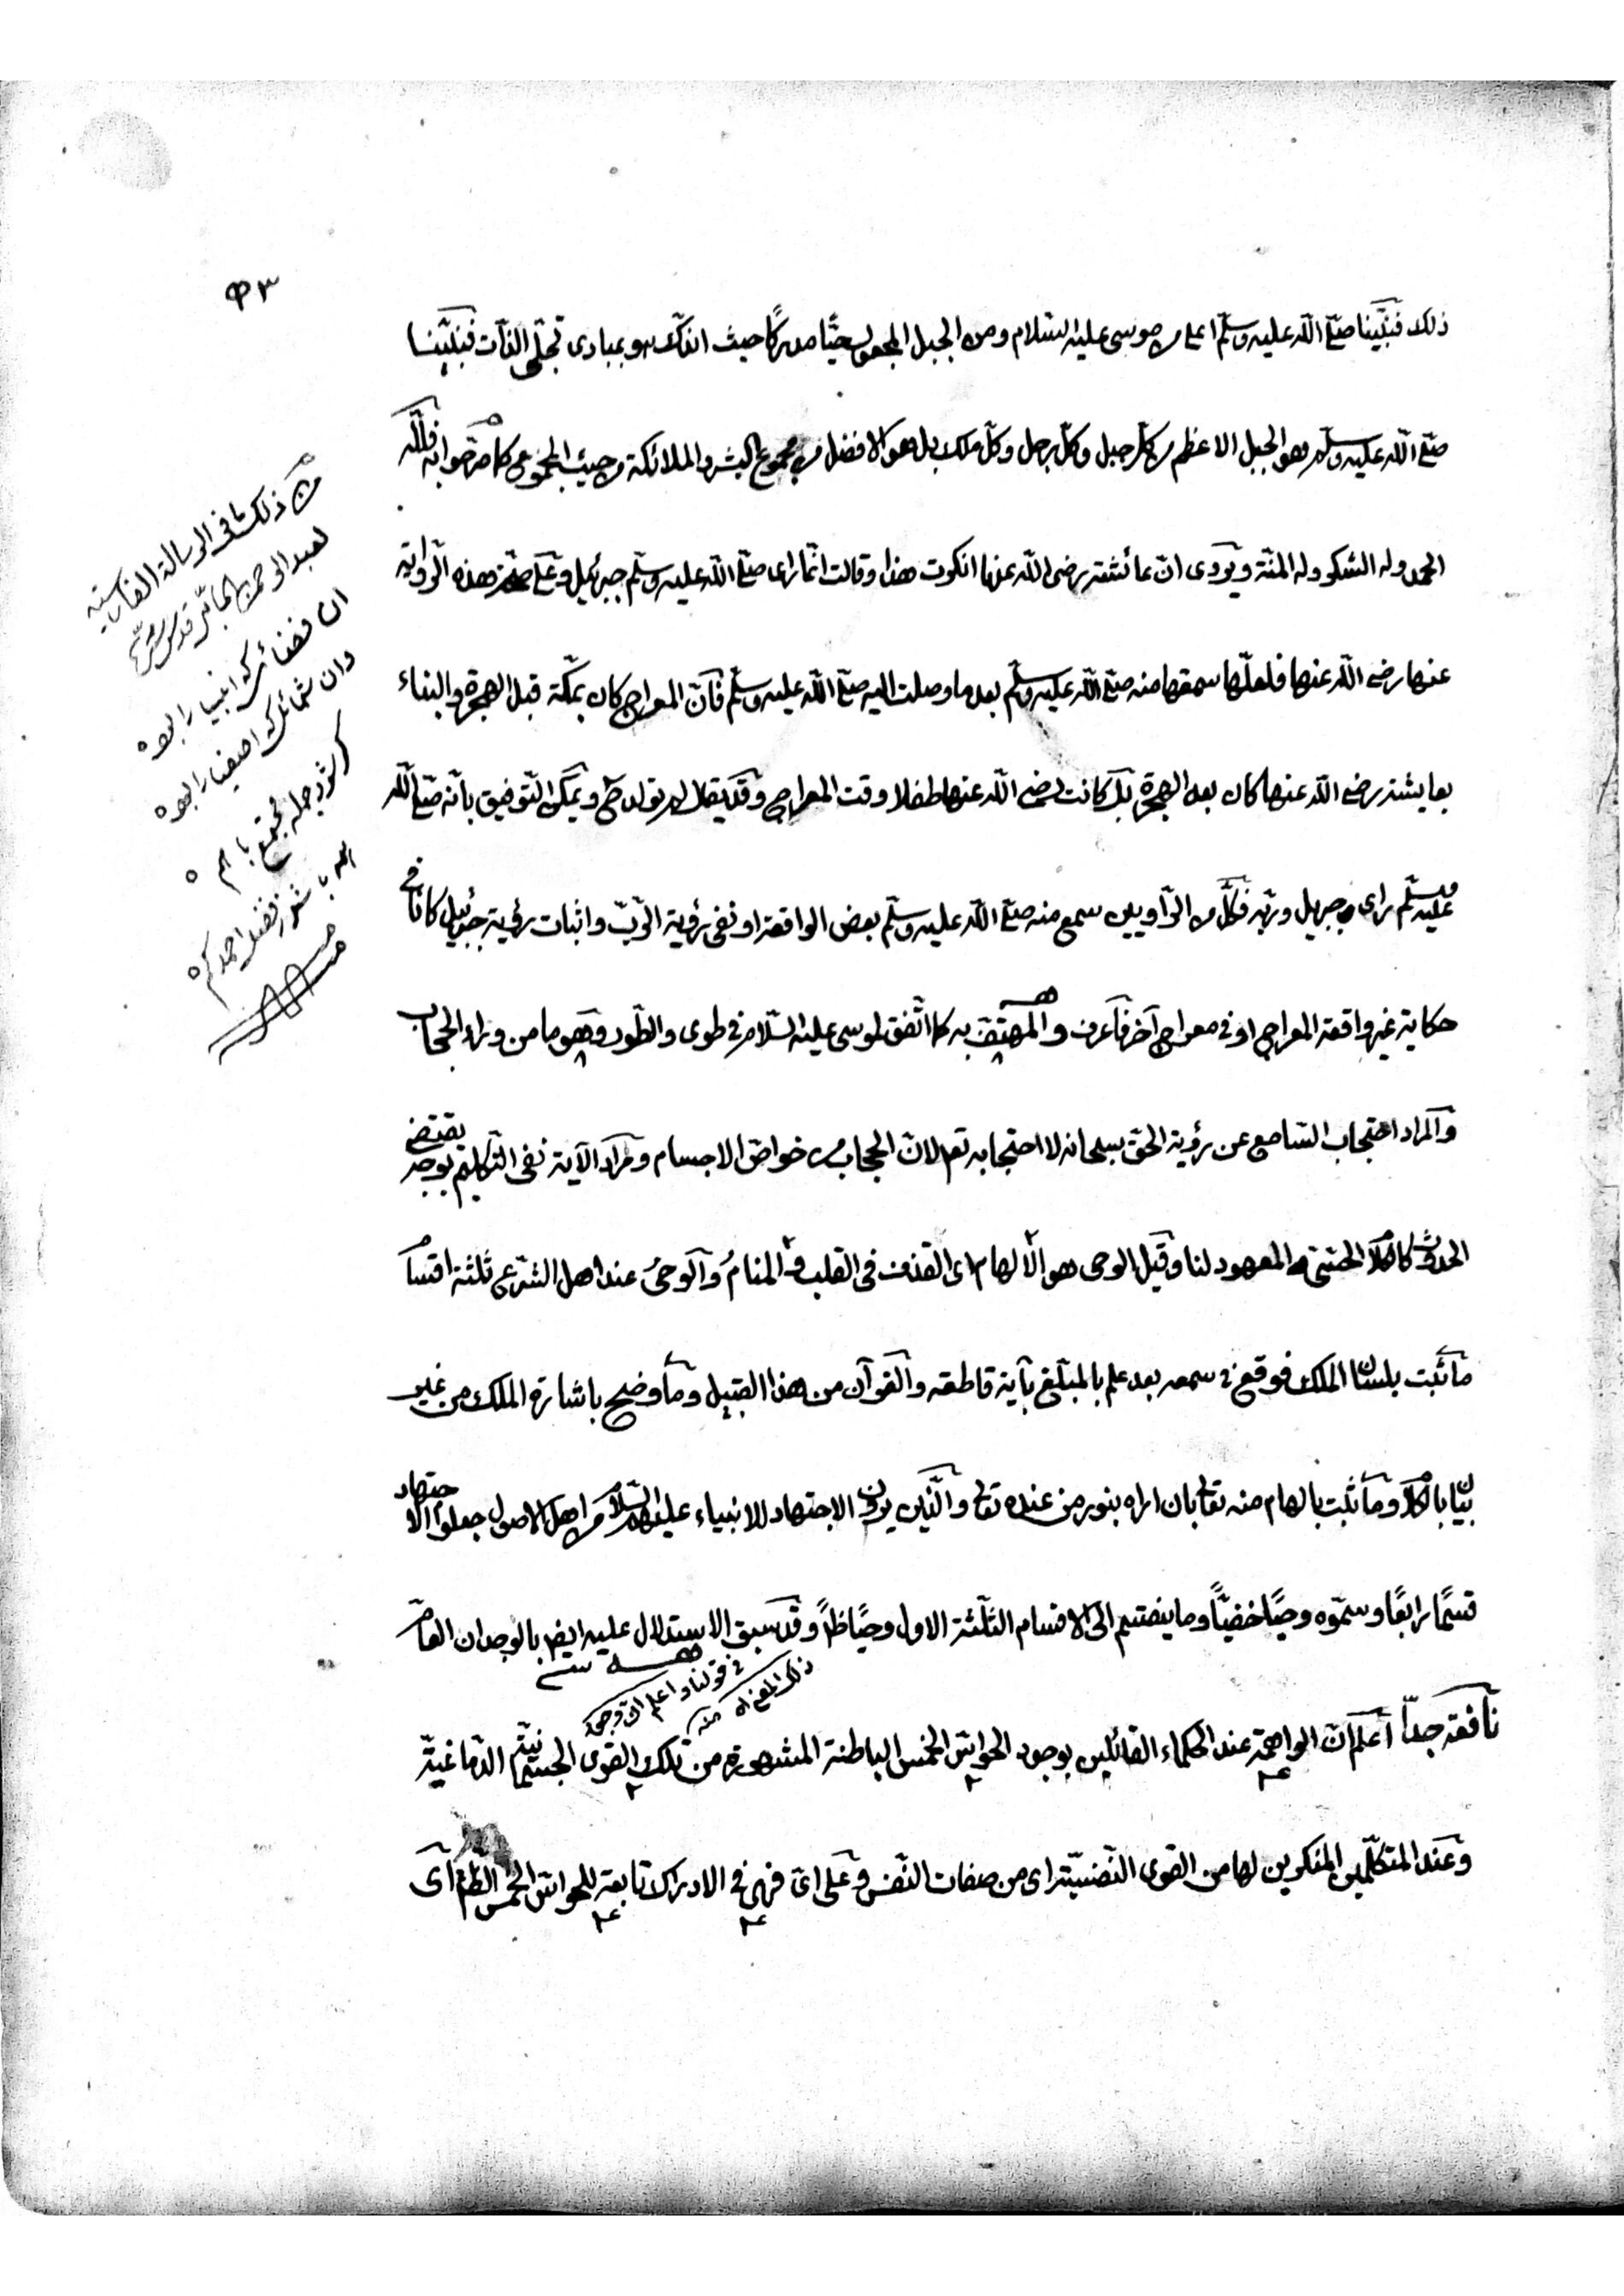 ٩٣
ذلك فنبيّنا صلّى الله عليه وسلّم اعلى من موسى عليه السّلام ومن الجبل المجعول حيًّا مدركًا حيث اندكّ هو بمبادى تجلّى الذّات فنبيّنا
صلّى الله عليه وسلّم هو الجبل الاعظم من كلّ جبل وكلّ رجل وكلّ ملك بل هو الافضل من مجموع البشر والملائكة من حيث المجموع كما صرّحوا به فللّه
الحمد وله الشكر وله المنّة ويروى انّ عائشة رضى الله عنها انكرت هذا وقالت انّما راى صلّى الله عليه وسلّم جبرئيل وعلى صحّة هذه الرّواية
عنها رضى الله عنها فلعلّها سمعتها منه صلّى الله عليه وسلّم بعد ما وصلت اليه صلّى الله عليه وسلّم فانّ المعراج كان بمكّة قبل الهجرة والبناء
بعايشة رضى الله عنها كان بعد الهجرة بل كانت رضى الله عنها طفلا وقت المعراج وقد يقال لم تولد ح ويمكن التّوفيق بانّه صلّى الله
عليه وسلّم راى جبريل وربّه فكلّ من الرّاويين سمع منه صلّى الله عليه وسلّم بعض الواقعة او نفى رؤية الرّبّ واثبات رؤية جبرئيل كانا فى
حكاية غير واقعة المعراج او فى معراج آخر فاعرف والمهتف به كما اتّفق لموسى عليه السّلام فى طوى والطّور وهو ما من وراء الحجاب
والمراد احتجاب السّامع عن رؤية الحق سبحانه لا احتجابه تعه لانّ الحجاب من خواصّ الاجسام ومراد الآية نفى التّكليم بوجه يقتضى
الحدوث كالكلام الحسّى المعهود لنا وقيل الوحى هو الالهام اى القذف فى القلب فى المنام والوحى عند اهل الشّرع ثلثة اقسام
ما ثبت بلسان الملك فوقع فى سمعه بعد علم بالمبلّغ بآية قاطعة والقرآن من هذا القبيل وما وضح باشارة الملك من غير
بيان بالكلام وما ثبت بالهام منه تعالى بان اراه بنور من عنده تعالى والّذين يرون الاجتهاد للانبياء عليهم السّلام من اهل الاصول جعلوا الاجتهاد
قسمًا رابعًا وسمّوه وحيًا خفيًّا وما ينقسم الى الاقسام الثّلثة الاول وحيًا ظاهرًا وقد سبق الاستدلال عليه ايضا بالوجدان العامّ
فى قولنا واعلم ان توجهى
ذلك المغزاه منه
نافعة جدّا اعلم انّ الواهمة عند الحكماء القائلين بوجود الحواسّ الخمس الباطنة المشهورة من تلك القوى الجسمانيّة الدّماغيّة
وعند المتكلّمين المنكرين لها من القوى النّفسيّة اى من صفات النّفس وعلى اىّ فهى فى الادراك تابعة للحواسّ الخمس الظّاهرة اى
من ذلك ما فى الرسالة الفارسيّة
لعبد الرحمن الجامى قدّس سرّه
ان فضائل كه انبيا را بود
وان شمائل كه اصفيا را بود
كر شود جمله مجتمع با هم